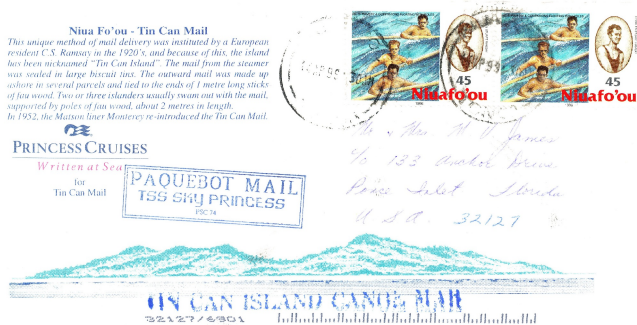 Niua Fo'ou - Tin Can Mail
This unique method of mail delivery was instituted by a European
resident C.S. Ramsay in the 1920's, and because of this, the island
has been nicknamed "Tin Can Island". The mail from the steamer
was sealed in large biscuit tins. The outward mail was made up
ashore in several parcels and tied to the ends of 1 metre long sticks
of fau wood. Two or three islanders usually swam out with the mail,
supported by poles of fau wood, about 2 metres in length.
In 1952, the Matson liner Monterey re-introduced the Tin Can Mail.
PRINCESS CRUISES
Written at Sea
for
Tin Can Mail
PAQUEBOT MAIL
TSS SKY PRINCESS
PSC 74
45
Niuafo'ou
45
Niuafo'ou
Mr & Mrs M James
c/o 133 Anchor Drive
Ponce Inlet Florida
USA 32127
TIN CAN ISLAND CANOE MAIL
32127/6901